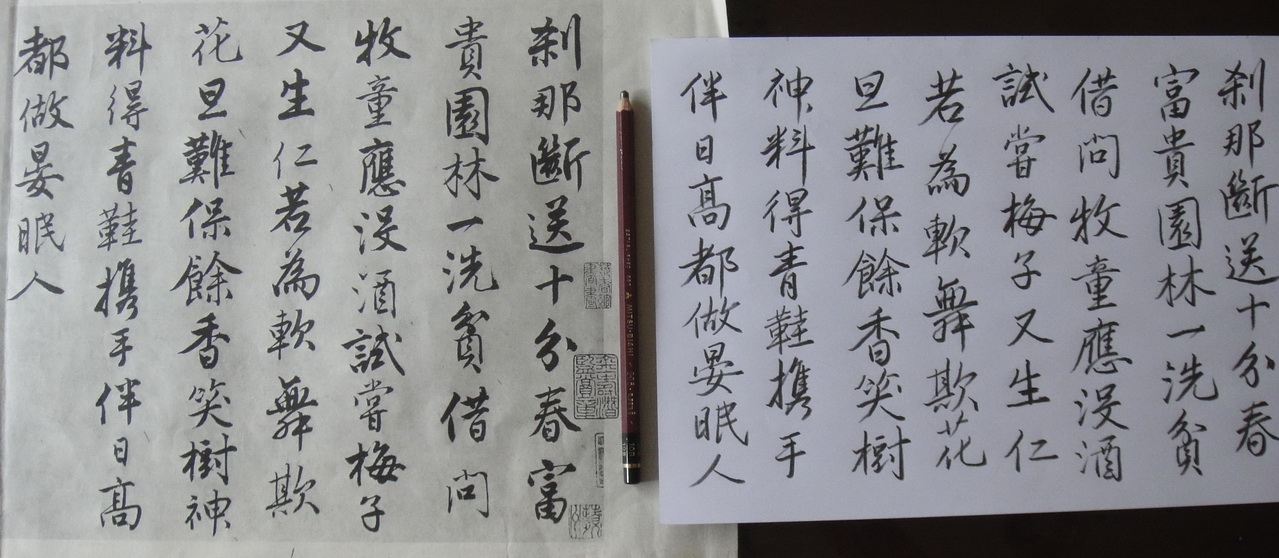 刹那斷送十分春富
貴園林一洗貧借問
牧童應没酒試嘗梅子
又生仁若為軟舞欺
花旦難保餘香笑樹神
料得青鞋攜手伴日高
都做晏眠人
刹那斷送十分春
富貴園林一洗貧
借問牧童應没酒
試嘗梅子又生仁
若為軟舞欺花
旦難保餘香笑樹
神料得青鞋攜手
伴日高都做晏眠人